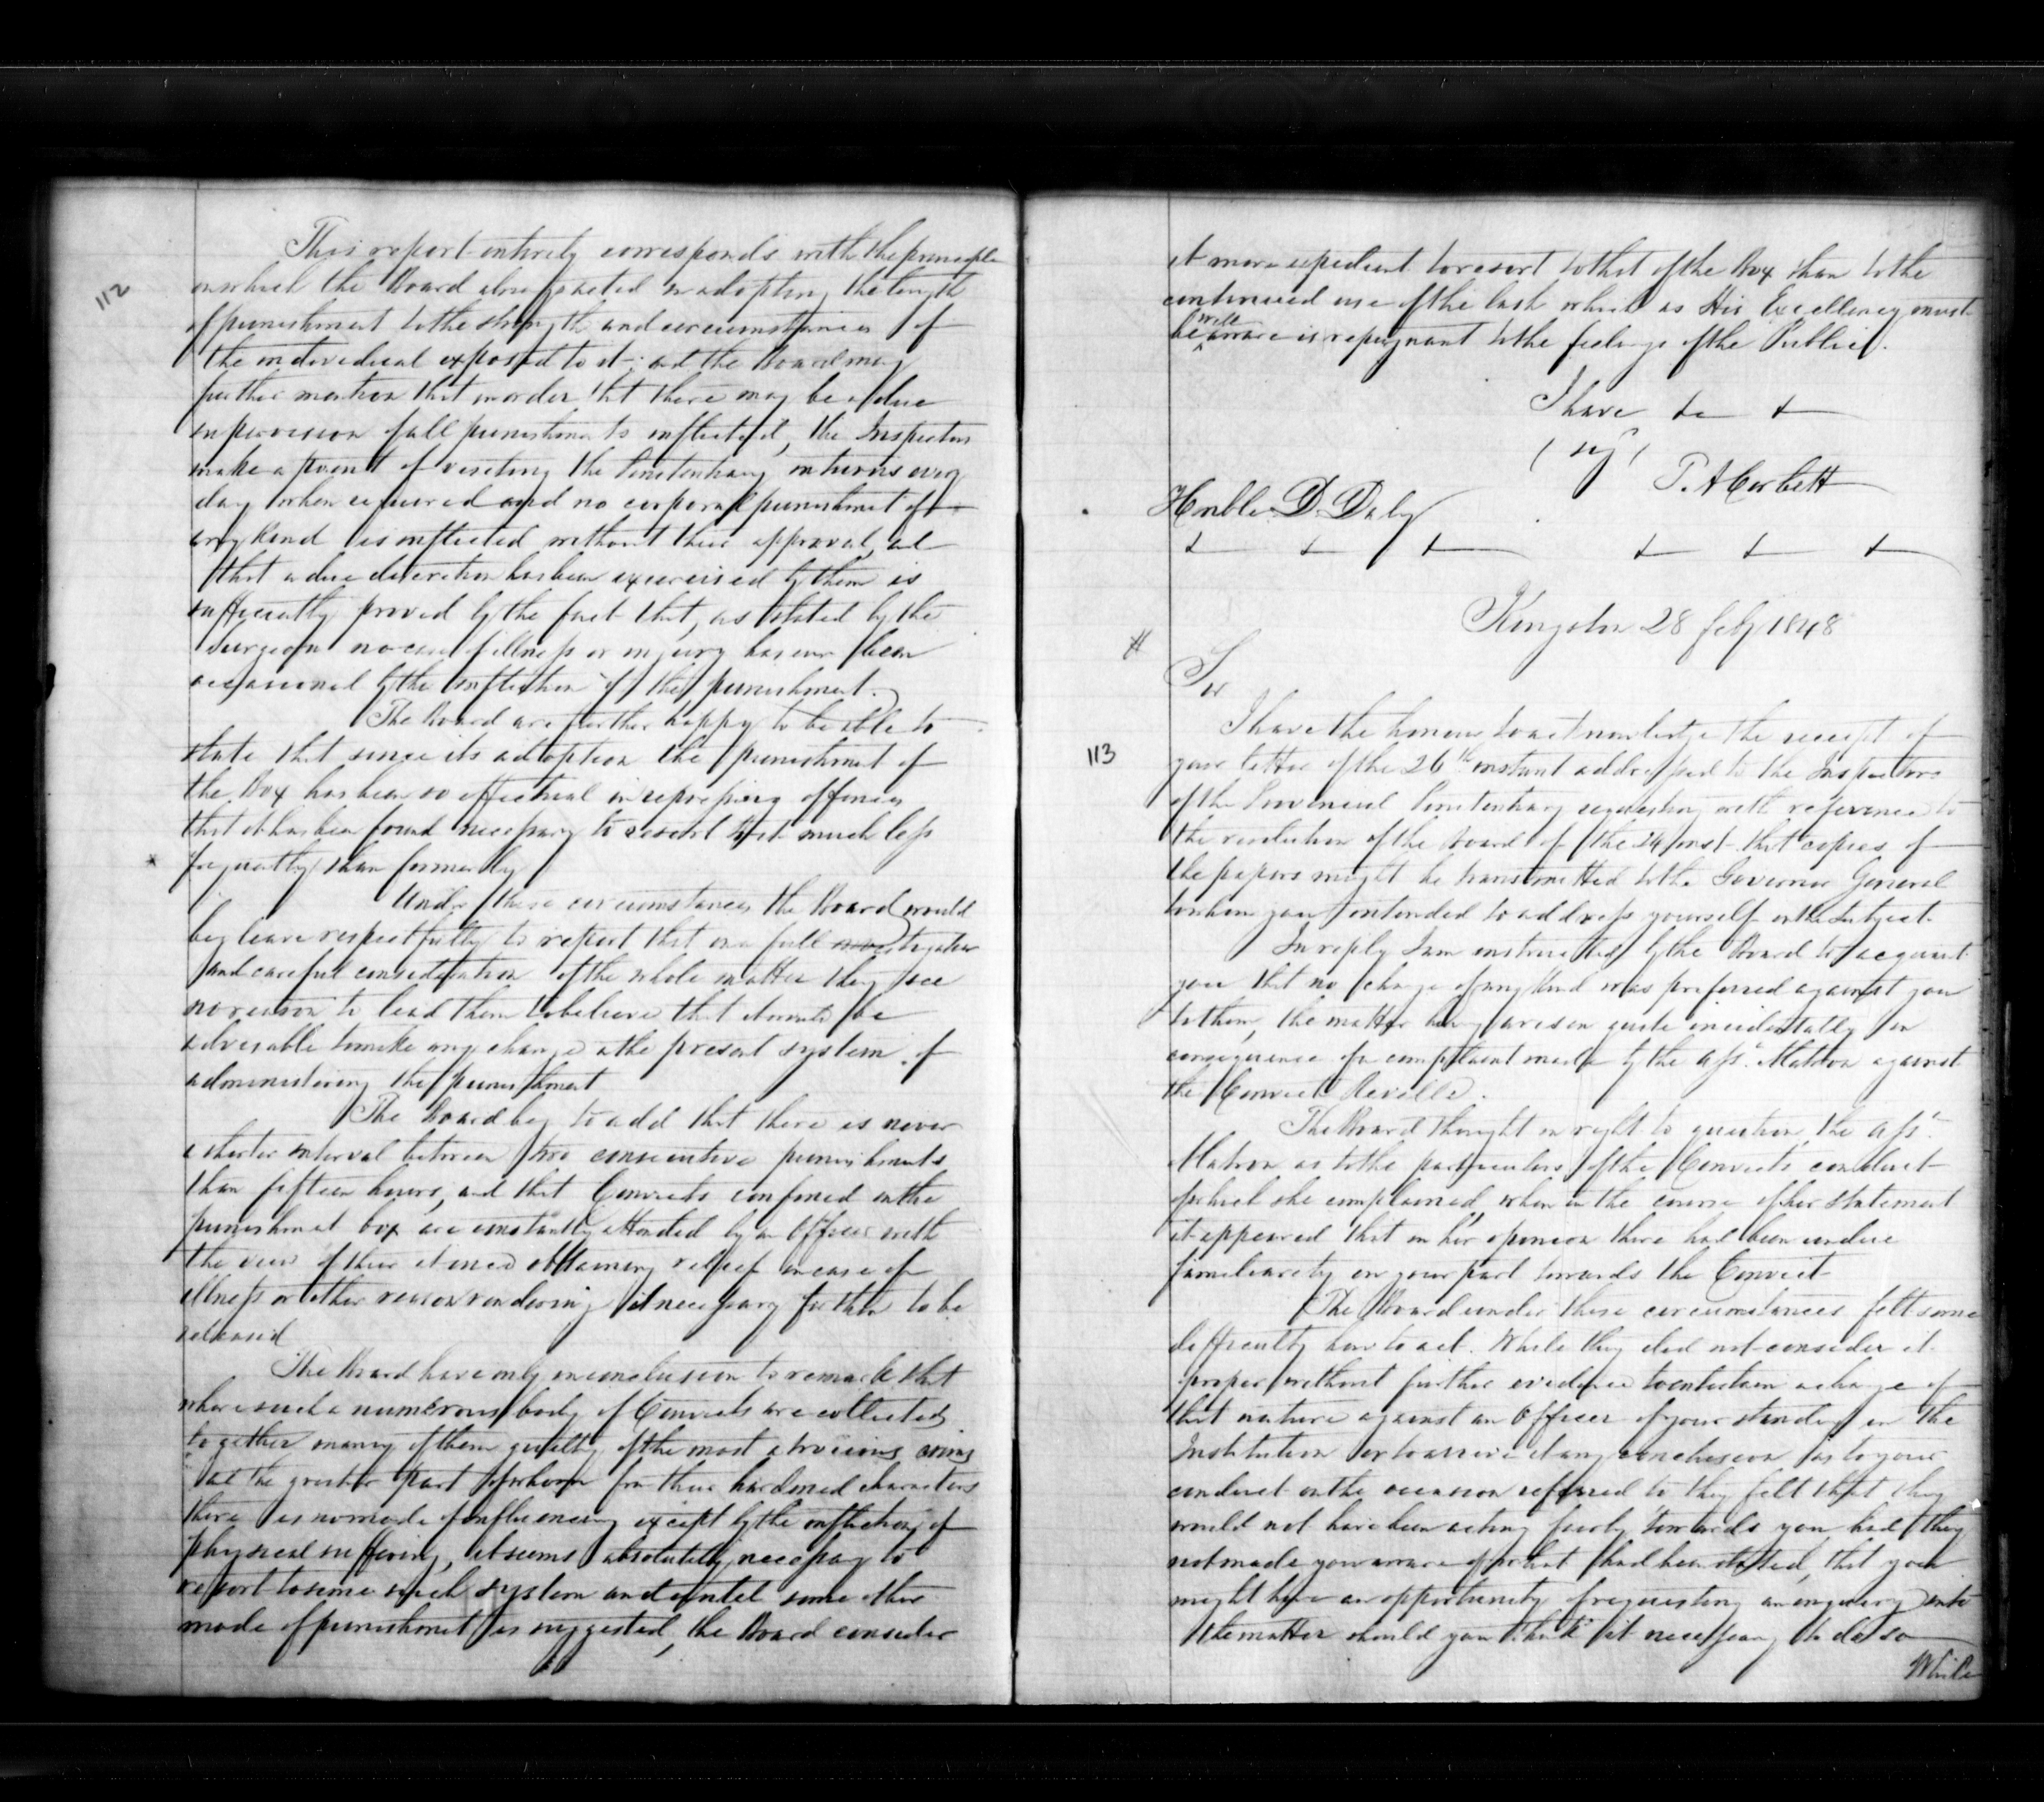 112
This report entirely corresponds with the principle
on which the Board always acted in adapting the length
of punishment to the strength and circumstances of
the individual exposed to it; and the Board may
further mention that in order that there may be a due
supervision of all punishments inflicted, the Inspectors
make a point of visiting the Penitentiary in turns every
day when required and no corporal punishment of
any kind is inflicted without their approval, and
that a due discretion has been exercised by them is
sufficiently proved by the fact that, as stated by the
Surgeon no case of illness or injury has ever been
occasioned by the infliction of the punishment.
The Board are further happy to be able to
state that since its adoption the punishment of
the Box has been so effectual in repressing offences
that it has been found necessary to resort to it much less
frequently than formerly
Under these circumstances the Board would
beg leave respectfully to report that on a full investigation
and careful consideration of the whole matter they see
no reason to lead them to believe that it would be
advisable to make any change in the present system of
administering the punishment
The Board beg to add that there is never
a shorter interval between two consecutive punishments
than fifteen hours, and that Convicts confined in the
punishment box are constantly attended by an Officer with
the view of their at once obtaining relief in case of
illness or other reason rendering it necessary for them to be
released
The Board have only in conclusion to remark that
where such a numerous body of Convicts are collected
together many of them guilty of the most atrocious crimes
and the greater part of whom from their hardened characters
there is no mode of influencing except by the infliction of
physical suffering, it seems absolutely necessary to
resort to some such system and until some other
mode of punishment is suggested, the Board consider
it more expedient to resort to that of the Box than to the
continued use of the lash which as His Excellency must
be well aware is repugnant to the feelings of the Public.
I have &c &
(sigd)
T. A Corbett
Honble D. Daly
& & & & & &
Kingston 28 Feby 1848
#
Sir
113
I have the honour to acknowledge the receipt of
your letter of the 26th instant addressed to the Inspectors
of the Provincial Penitentiary requesting with reference to
the resolution of the Board of the 24 inst. that copies of
the papers might be transmitted to the Governor General
to whom you intended to address yourself on the subject.
In reply I am instructed by the Board to acquaint
you that no charge of any kind was preferred against you
to them, the matter having arisen quite incidentally in
consequence of a complaint made by the Asst. Matron against
the Convict Reveille.
The Board thought it right to question the Asst.
Matron as to the particulars of the Convict's conduct
of which she complained, when in the course of her statement
it appeared that in her opinion there had been undue
familiarity on your part towards the Convict
The Board under these circumstances felt some
difficulty how to act. While they did not consider it
proper without further evidence to entertain a charge of
that nature against an Officer of your standing in the
Institution or to arrive at any conclusion as to your
conduct on the occasion referred to they felt that they
would not have been acting fairly towards you had they
not made you aware of what had been stated, that you
might have an opportunity of requesting an enquiry into
the matter should you think it necessary to do so
While